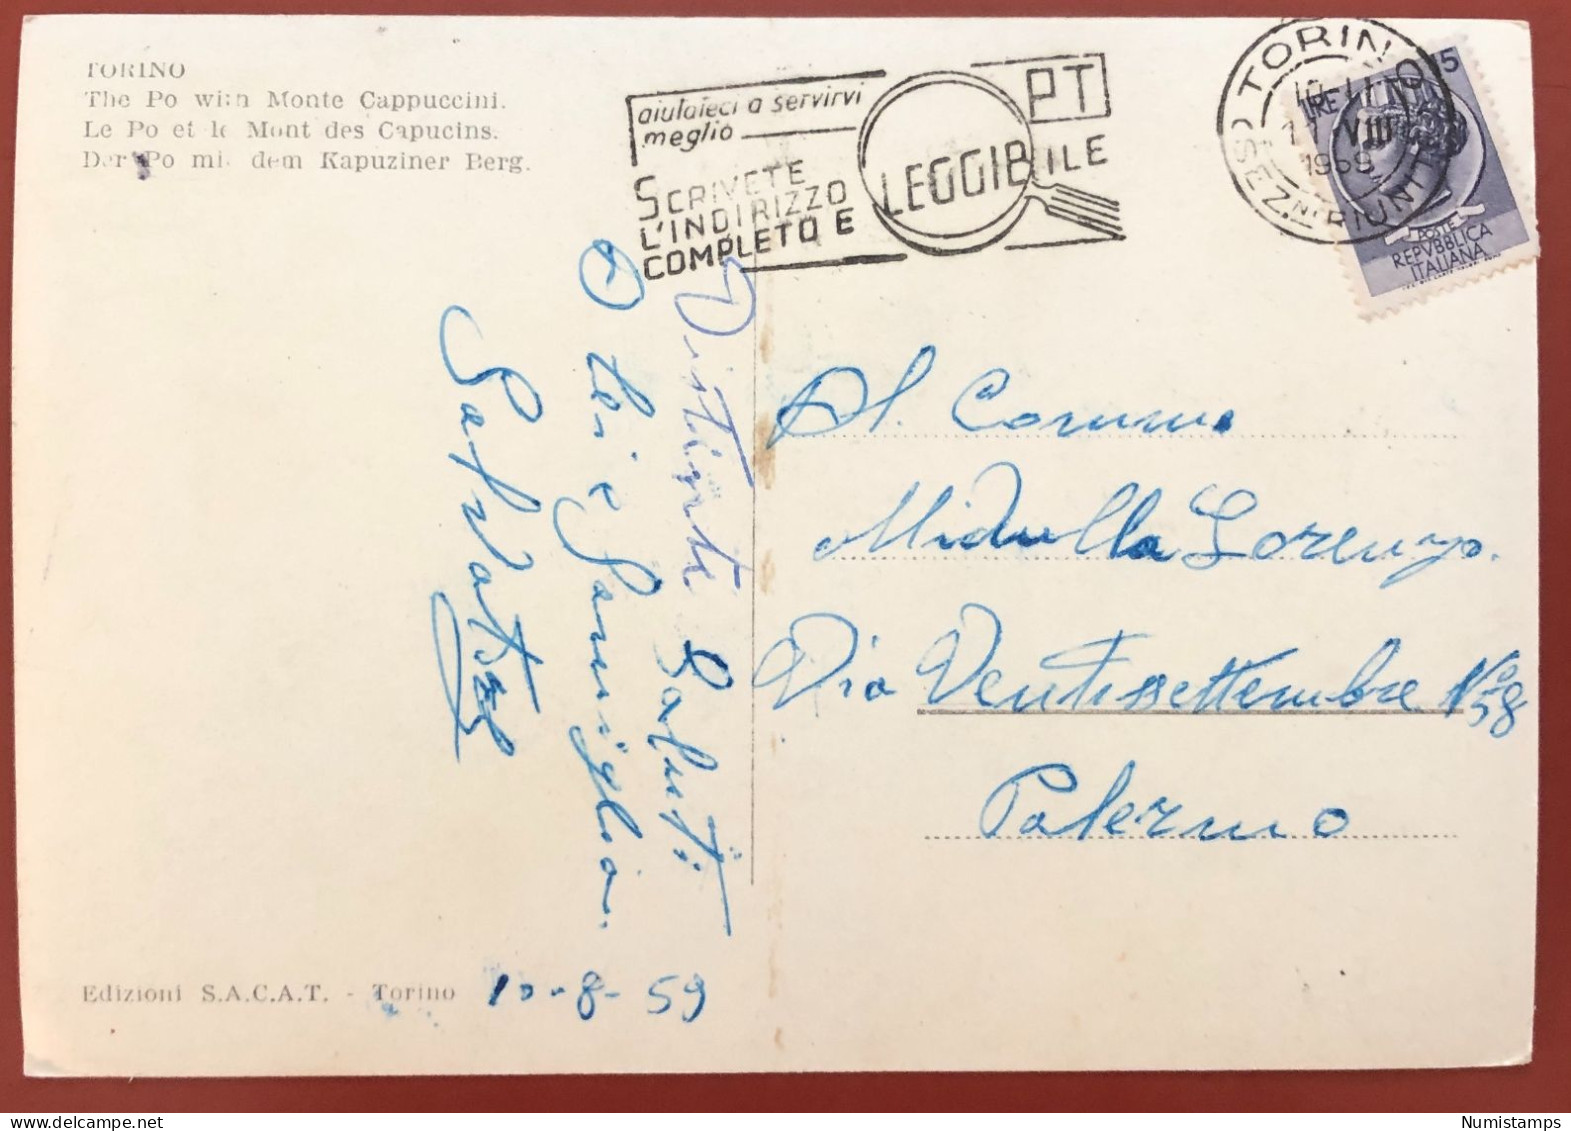 TORINO
The Po with Monte Cappuccini.
Le Po et le Mont des Capucins.
Der Po mit dem Kapuziner Berg.
aiutateci a servirvi
meglio
SCRIVETE
L'INDIRIZZO
COMPLETO E
LEGGIBILE
PT
TORINO
11 VIII
1959
N RIUNITI
LIRE 15
POSTE
REPVBBLICA
ITALIANA
Distinte Saluti
a Lei e Famiglia.
Salvatore
10-8-59
Al. Comm.
Midulla Lorenzo.
Via Ventisettembre N° 58
Palermo
Edizioni S.A.C.A.T. - Torino
Numistamps